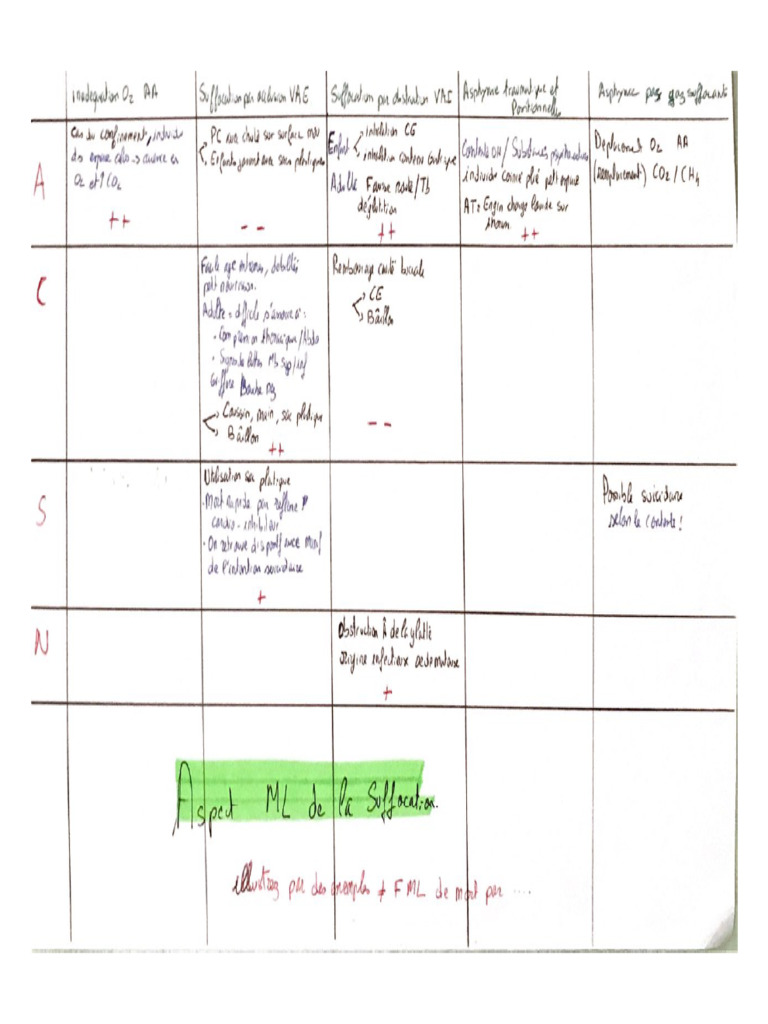 Inadéquation O2 AA
Suffocation par occlusion VAE
Suffocation par obstruction VAI
Asphyxie traumatique et
Positionnelle
Asphyxie par gaz suffocants
A
Cas du confinement, individu
ds espace clos → pauvre en
O2 et ↑ CO2
++
PC avec chute sur surface
Enfants jouant avec sacs plastiques
--
Enfant
inhalation CE
inhalation contenu gastrique
Adulte Fausse route/Tb
déglutition
++
Contexte OH / Substances psychoactives
individu coincé plié petit espace
AT: Engin charge lourde sur
thorax ++
Déplacement O2 AA
(remplacement) CO2/CH4
C
Facile age extremes, débilités
Adulte = difficile :
• Compression thoracique/Abdo
• Signe de luttes Mb sup/inf
Griffure bouche nez
Coussin, main, sac plastique
Bâillon
++
Remborrage cavité buccale
CE
Bâillon
--
S
Utilisation sac plastique
• Mort rapide par réflexe
cardio-inhibiteur
• On retrouve dispositif avec
de l'intention suicidaire
+
Possible suicidaire
selon le contexte!
N
Obstruction de la glotte
origine infectieuse oedemateuse
+
Aspect ML de la Suffocation.
illustrez par des exemples ≠ F ML de mort par ....